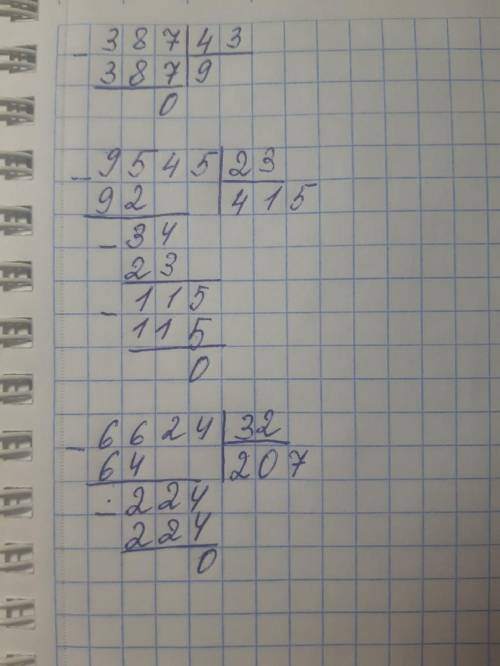 - 387 | 43
387 | 9
0
- 9545 | 23
92 | 415
- 34
23
- 115
115
0
- 6624 | 32
64 | 207
- 224
224
0